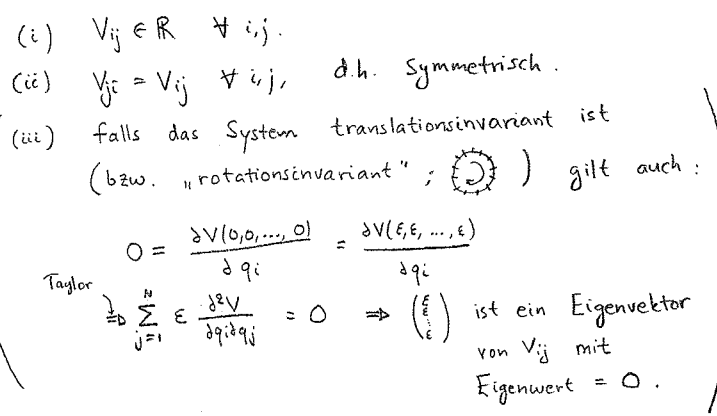 (i) Vij ∈ ℝ ∀ i,j.
(ii) Vji = Vij ∀ i,j, d.h. Symmetrisch.
(iii) falls das System translationsinvariant ist
(bzw. „rotationsinvariant"; ) gilt auch:
0 = ∂V(0,0,...,0)/∂qi = ∂V(ε,ε,...,ε)/∂qi
Taylor
⇒ ∑_{j=1}^{N} ε ∂²V/∂qi∂qj = 0 ⇒ (ε ε ⋮ ε) ist ein Eigenvektor
von Vij mit
Eigenwert = 0.